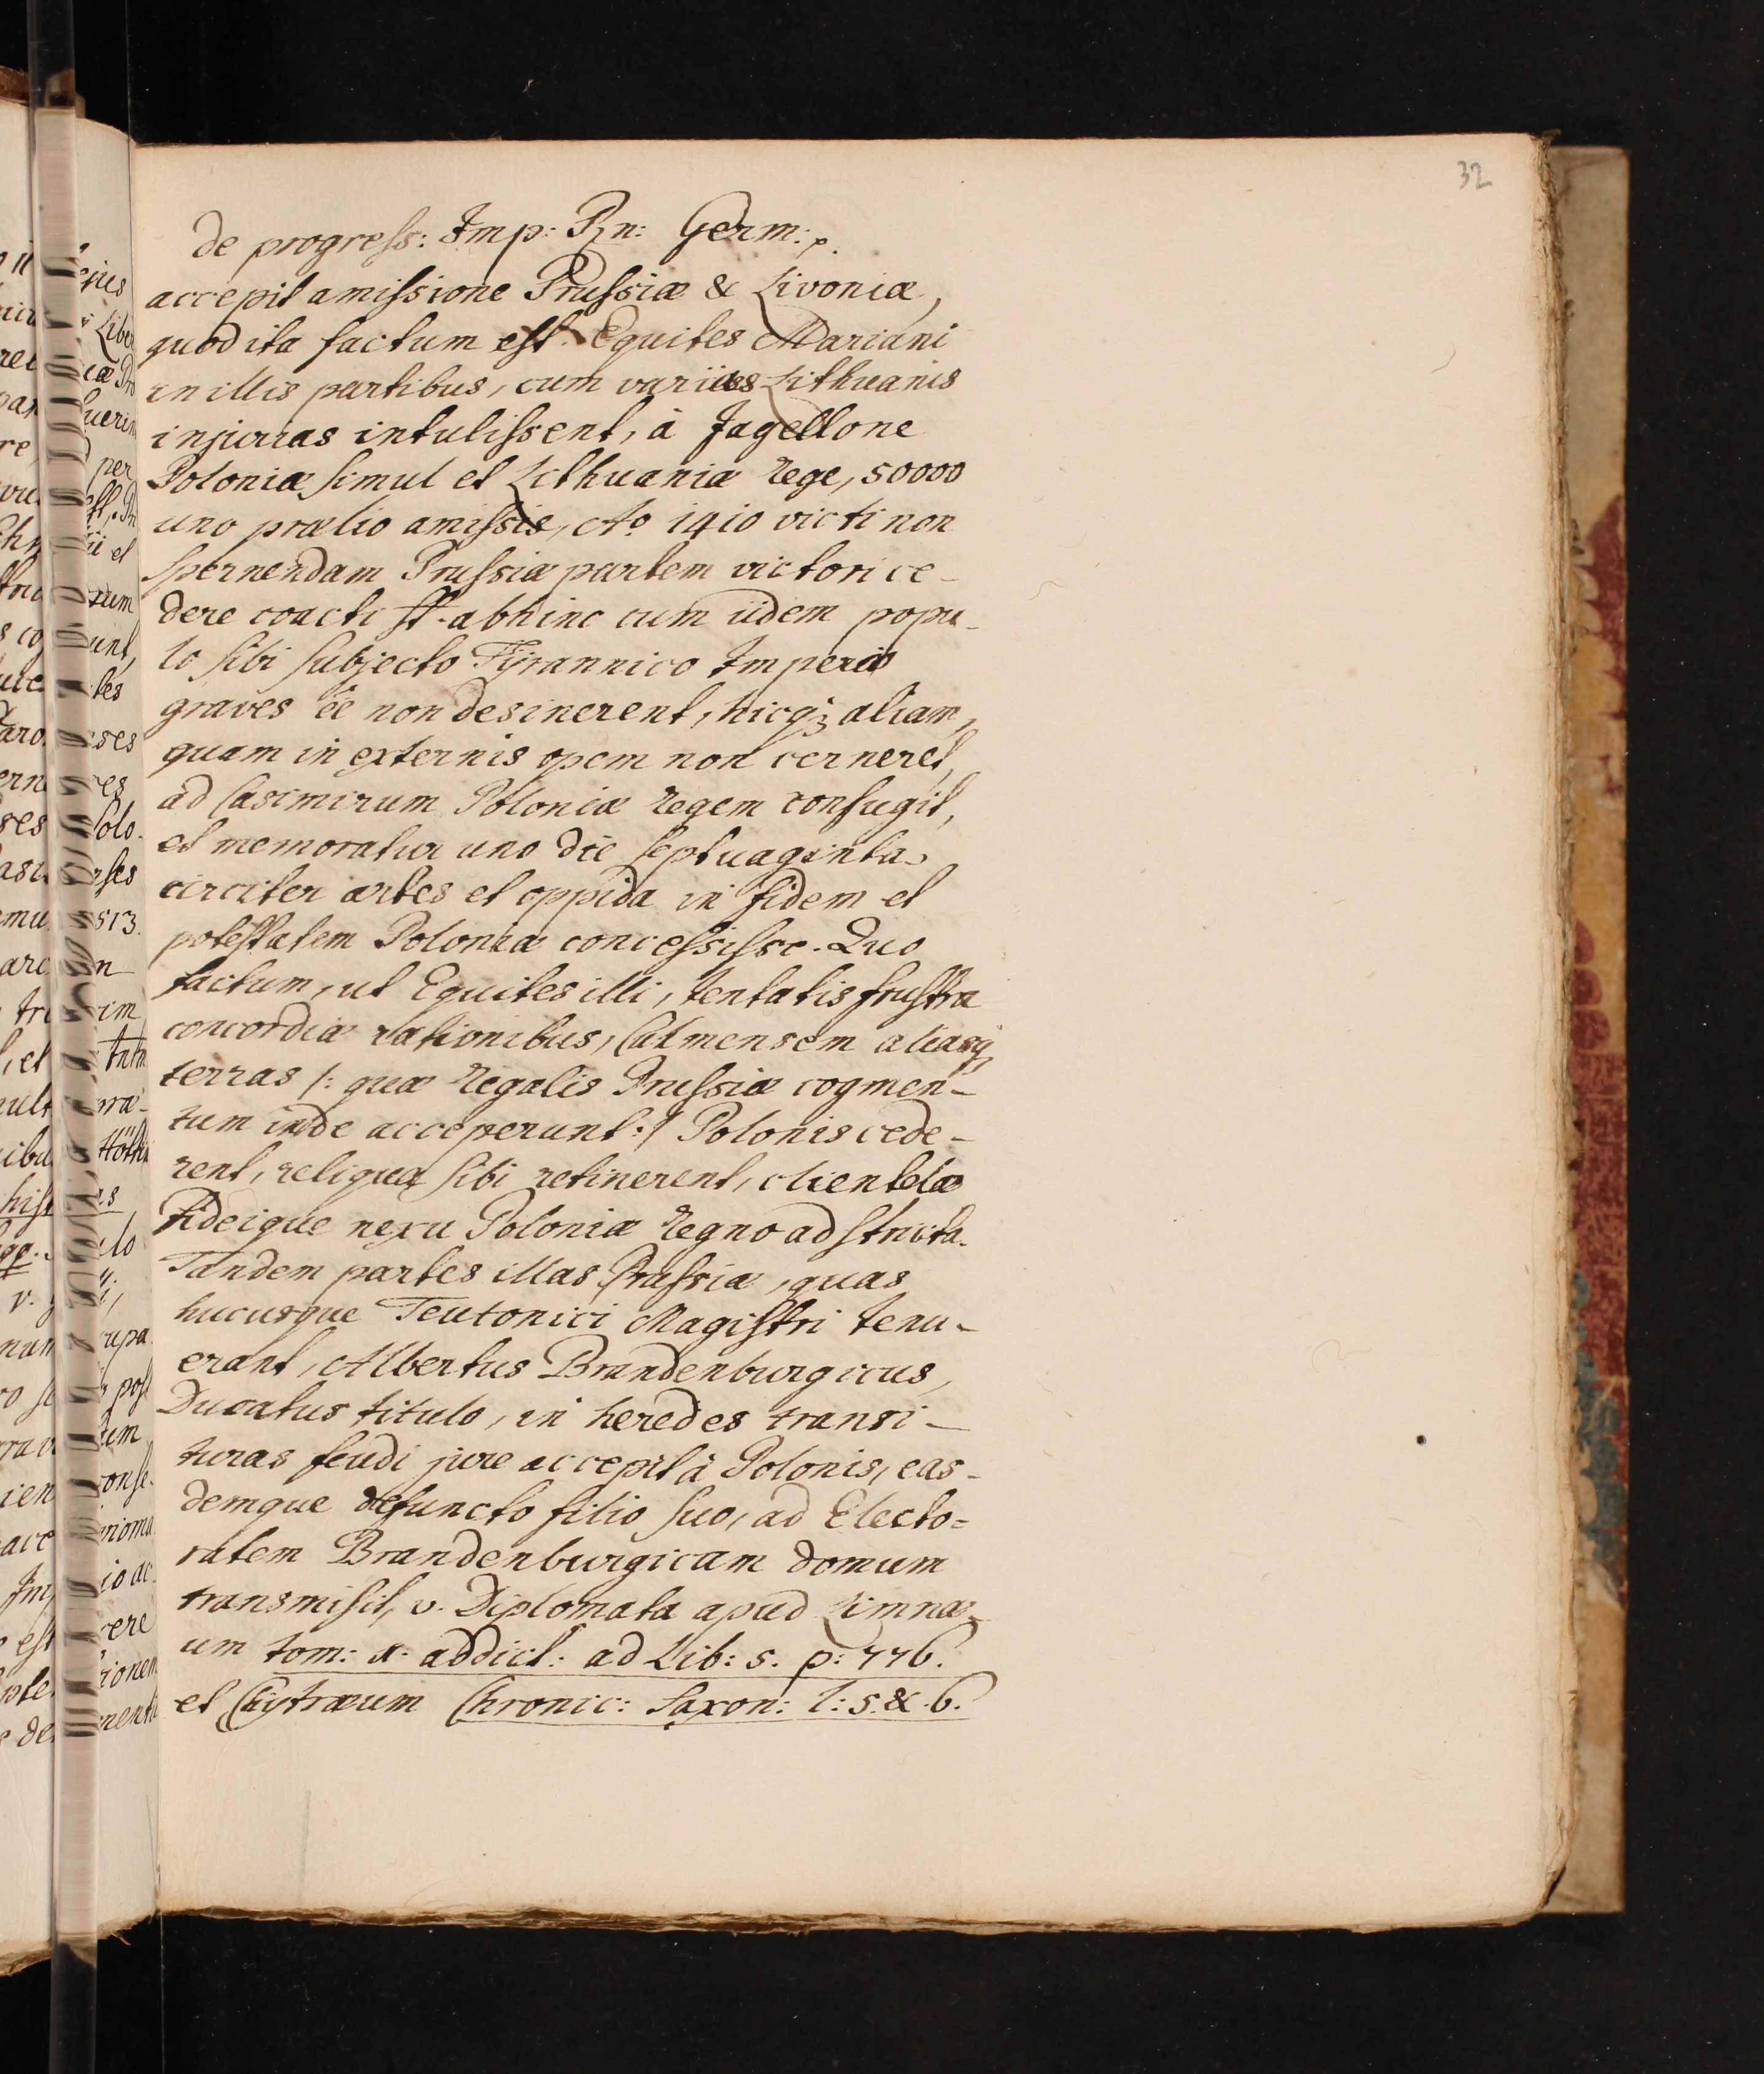 32
de progress: Imp: Rn: Germ: p.
accepit amissione Prussiæ & Livoniæ,
quod ita factum est. Equites Mariani
in illis partibus, cum varias Lithuanis
injurias intulissent, à Jagellone
Poloniæ simul et Lithuaniæ rege, 50000
uno prælio amissis, Aº 1410 victi non
spernendam Prussiæ partem victori ce-
dere coacti st. abhinc cum iidem popu-
lo sibi subjecto Tÿrannico Imperio
graves ee non desinerent, hicq; aliam,
quam in externis opem non cerneret,
ad Casimirum Poloniæ regem confugit,
et memoratur uno die septuaginta
circiter artes et oppida in fidem et
potestatem Poloniæ concessisse. Quo
factum, ut Equites illi, tentatis frustra
concordiæ rationibus, Culmensem aliasq;
terras /: quæ regalis Prussiæ cogmen-
tum inde acceperunt :/ Polonis cede-
rent, reliqua sibi retinerent, clientelæ
fideique nexu Poloniæ regno adstricta.
Tandem partes illas Prussiæ, quas
hucusque Teutonici Magistri tenu-
erant, Albertus Brandenburgicus,
Ducatus titulo, in heredes transi-
turas feudi jure accepit à Polonis, eas-
demque defuncto filio suo, ad Electo=
ratem Brandenburgicam domum
transmisit, v. Diplomata apud Limnæ-
um tom: 1. addict: ad Lib: 5. p: 776.
et Chytræum Chronic: Saxon: l: 5. & 6.